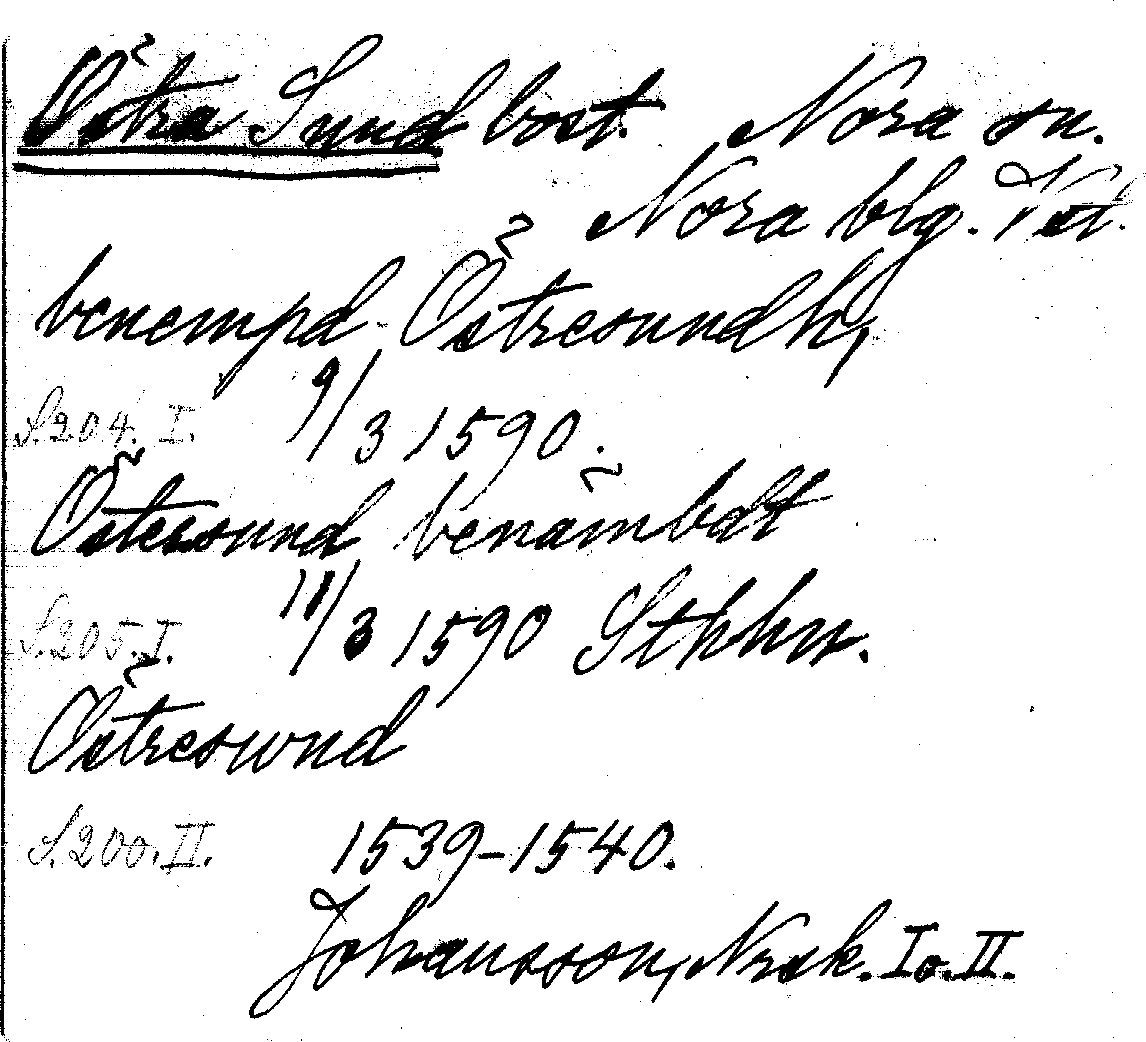 Östra Sund bost. Nora sn.
Nora blg. Vstl.
benempd Östresundh,
S. 204. I. 9/3 1590.
Östersund benämbdt
S. 205. I. 11/3 1590 Sthhm.
Östresund
S. 200. II. 1539-1540.
Johansson, Nrsk. I o. II.